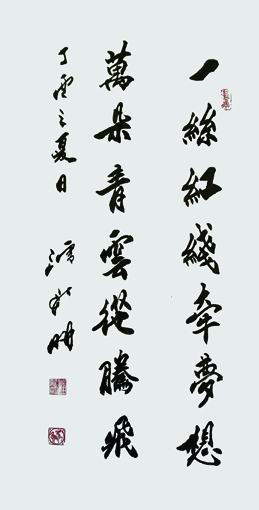 一絲紅綫牽夢想
萬朵青雲從騰飛
丁酉之夏日